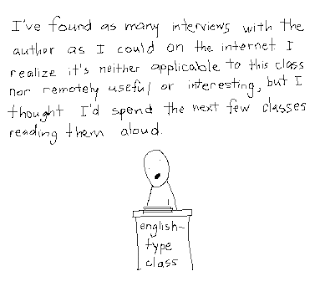 I've found as many interviews with the
author as I could on the internet I
realize it's neither applicable to this class
nor remotely useful or interesting, but I
thought I'd spend the next few classes
reading them aloud.
english-
type
class